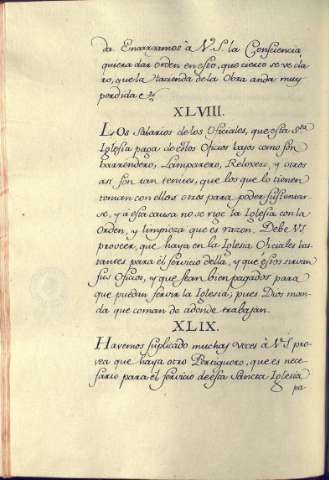 da Encargamos à V. S. la Consciencia
quiera dar orden en esto, que cierto se ve cla
ro, que la Hacienda de la Obra anda muy
perdida &c.ª
XLVIII.
Los Salarios de los Oficiales, que esta S.ta
Iglesia paga de estos Oficios bajos como son
barrendero, Lamparero, Reloxero, y otros
asi son tan tenues, que los que lo tienen
toman con ellos otros para poder sustentar
se, y á esta causa no se rige la Iglesia con la
Orden, y limpieza que es razon. Debe V. S.
proveer, que haya en la Iglesia Oficiales bas
tantes para el servicio della, y que estos sirvan
sus Oficios, y que sean bien pagados para
que puedan servir la Iglesia; pues Dios man
da que coman de adonde trabajan.
XLIX.
Havemos suplicado muchas veces à V. S. pro
vea que haya otro Pertiguero, que es nece
sario para el servicio de esta Sancta Iglesia
pa